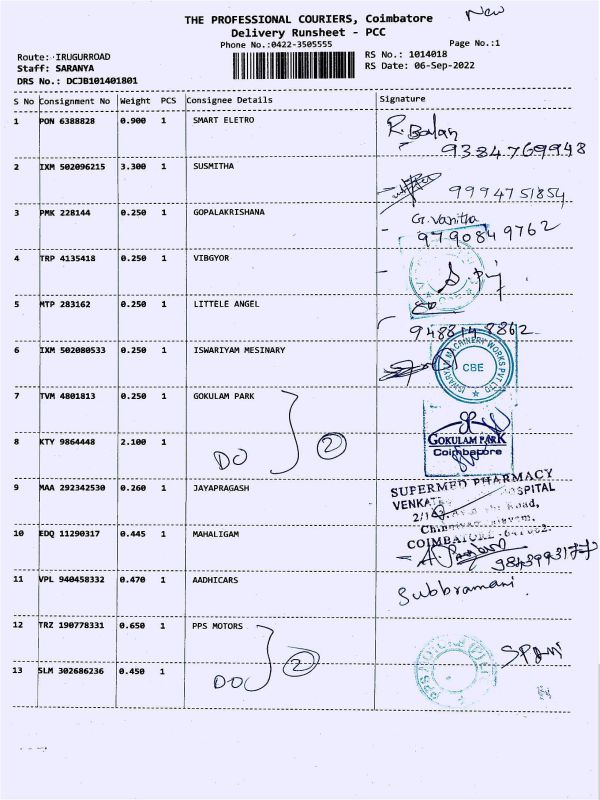 New
THE PROFESSIONAL COURIERS, Coimbatore
Delivery Runsheet - PCC
Phone No.:0422-3505555
Page No.:1
Route: IRUGURROAD
RS No.: 1014018
Staff: SARANYA
RS Date: 06-Sep-2022
DRS No.: DCJB101401801
S No Consignment No Weight PCS Consignee Details Signature
1 PON 6388828 0.900 1 SMART ELETRO R. Balan
9384769948
2 IXM 502096215 3.300 1 SUSMITHA
9994751854
3 PMK 228144 0.250 1 GOPALAKRISHANA G. Vanitha
9790849762
4 TRP 4135418 0.250 1 VIBGYOR
5 MTP 283162 0.250 1 LITTELE ANGEL
9488148862
6 IXM 502080533 0.250 1 ISWARIYAM MESINARY
ISWARIYAM MACHINERY WORKS PVT LTD
CBE
7 TVM 4801813 0.250 1 GOKULAM PARK
GOKULAM PARK
Coimbatore
8 KTY 9864448 2.100 1 DO 2
9 MAA 292342530 0.260 1 JAYAPRAGASH
SUPERMED PHARMACY
HOSPITAL
Road,
COIMBATORE
10 EDQ 11290317 0.445 1 MAHALIGAM
11 VPL 940458332 0.470 1 AADHICARS Subbramani
12 TRZ 190778331 0.650 1 PPS MOTORS
13 SLM 302686236 0.450 1 DO 2